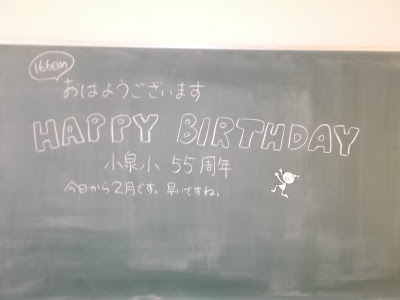 166日め
おはようございます
HAPPY BIRTHDAY
小泉小 55周年
今日から2月です。早いですね。